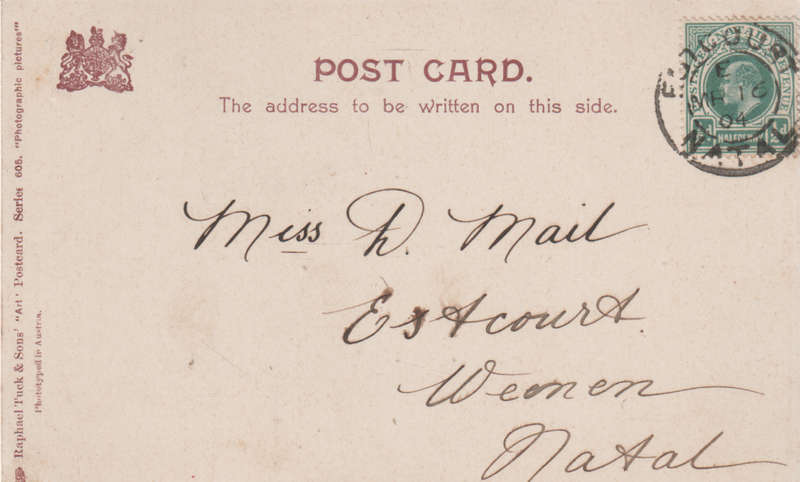 POST CARD.
The address to be written on this side.
ESTCOURT
E
MR 16
04
NATAL
POSTAGE REVENUE
HALFPENNY
Miss D. Mail
Estcourt.
Weenen
Natal
Raphael Tuck & Sons' "Art" Postcard. Series 608. "Photographic pictures"
Phototyped in Austria.